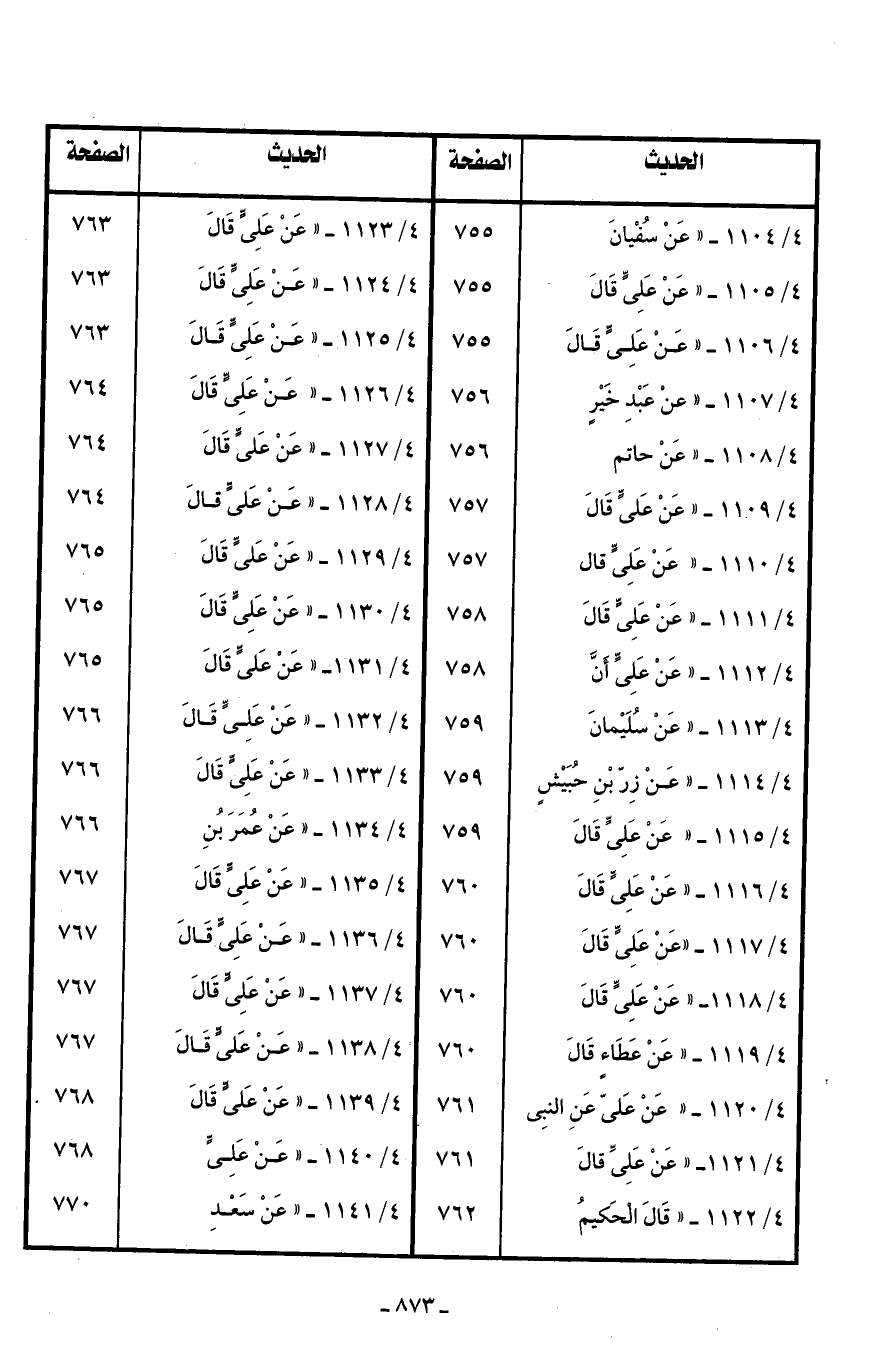 الحديث الصفحة الحديث الصفحة
٤/ ١١٠٤ ـ « عَنْ سُفْيانَ ٧٥٥ ٤/ ١١٢٣ ـ « عَنْ عَلِىٍّ قَالَ ٧٦٣
٤/ ١١٠٥ ـ « عَنْ عَلِىٍّ قَالَ ٧٥٥ ٤/ ١١٢٤ ـ « عَـنْ عَلِىٍّ قَالَ ٧٦٣
٤/ ١١٠٦ ـ « عَـنْ عَلِـىٍّ قَـالَ ٧٥٥ ٤/ ١١٢٥ ـ « عَـنْ عَلِىٍّ قَـالَ ٧٦٣
٤/ ١١٠٧ ـ « عنْ عَبْدِ خَيْرٍ ٧٥٦ ٤/ ١١٢٦ ـ « عَـنْ عَلِىٍّ قَالَ ٧٦٤
٤/ ١١٠٨ ـ « عَنْ حاتم ٧٥٦ ٤/ ١١٢٧ ـ « عَنْ عَلِىٍّ قَالَ ٧٦٤
٤/ ١١٠٩ ـ « عَنْ عَلِىٍّ قَالَ ٧٥٧ ٤/ ١١٢٨ ـ « عَـنْ عَلِىٍّ قـالَ ٧٦٤
٤/ ١١١٠ ـ « عَنْ عَلِىٍّ قال ٧٥٧ ٤/ ١١٢٩ ـ « عَنْ عَلِىٍّ قَالَ ٧٦٥
٤/ ١١١١ ـ « عَنْ عَلِىٍّ قَالَ ٧٥٨ ٤/ ١١٣٠ ـ « عَنْ عَلِىٍّ قَالَ ٧٦٥
٤/ ١١١٢ ـ « عَنْ عَلِىٍّ أَنَّ ٧٥٨ ٤/ ١١٣١ـ « عَنْ عَلِىٍّ قَالَ ٧٦٥
٤/ ١١١٣ ـ « عَنْ سُلَيْمانَ ٧٥٩ ٤/ ١١٣٢ ـ « عَنْ عَلِـىٍّ قَـالَ ٧٦٦
٤/ ١١١٤ ـ « عَـنْ زِرّ بْنِ حُبَيْشٍ ٧٥٩ ٤/ ١١٣٣ ـ « عَنْ عَلِىٍّ قَالَ ٧٦٦
٤/ ١١١٥ ـ « عَنْ عَلِىٍّ قَالَ ٧٥٩ ٤/ ١١٣٤ ـ « عَنْ عُمَرَ بْنِ ٧٦٦
٤/ ١١١٦ ـ « عَنْ عَلِىٍّ قَالَ ٧٦٠ ٤/ ١١٣٥ ـ « عَنْ عَلِىٍّ قَالَ ٧٦٧
٤/ ١١١٧ ـ «عَنْ عَلِىٍّ قَالَ ٧٦٠ ٤/ ١١٣٦ ـ « عَـنْ عَلِىٍّ قَـالَ ٧٦٧
٤/ ١١١٨ـ « عَنْ عَلِىٍّ قَالَ ٧٦٠ ٤/ ١١٣٧ ـ « عَنْ عَلِىٍّ قَالَ ٧٦٧
٤/ ١١١٩ ـ « عَنْ عَطَاءٍ قَالَ ٧٦٠ ٤/ ١١٣٨ ـ « عَـنْ عَلىٍّ قَـالَ ٧٦٧
٤/ ١١٢٠ ـ « عَنْ عَلىّ عَنِ النبى ٧٦١ ٤/ ١١٣٩ ـ « عَنْ عَلىٍّ قَالَ ٧٦٨
٤/ ١١٢١ـ « عَنْ عَلِىٍّ قالَ ٧٦١ ٤/ ١١٤٠ ـ « عَـنْ عَلِـىٍّ ٧٦٨
٤/ ١١٢٢ ـ « قَالَ الْحَكيمُ ٧٦٢ ٤/ ١١٤١ ـ « عَنْ سَعْـدِ ٧٧٠
ـ ٨٧٣ ـ